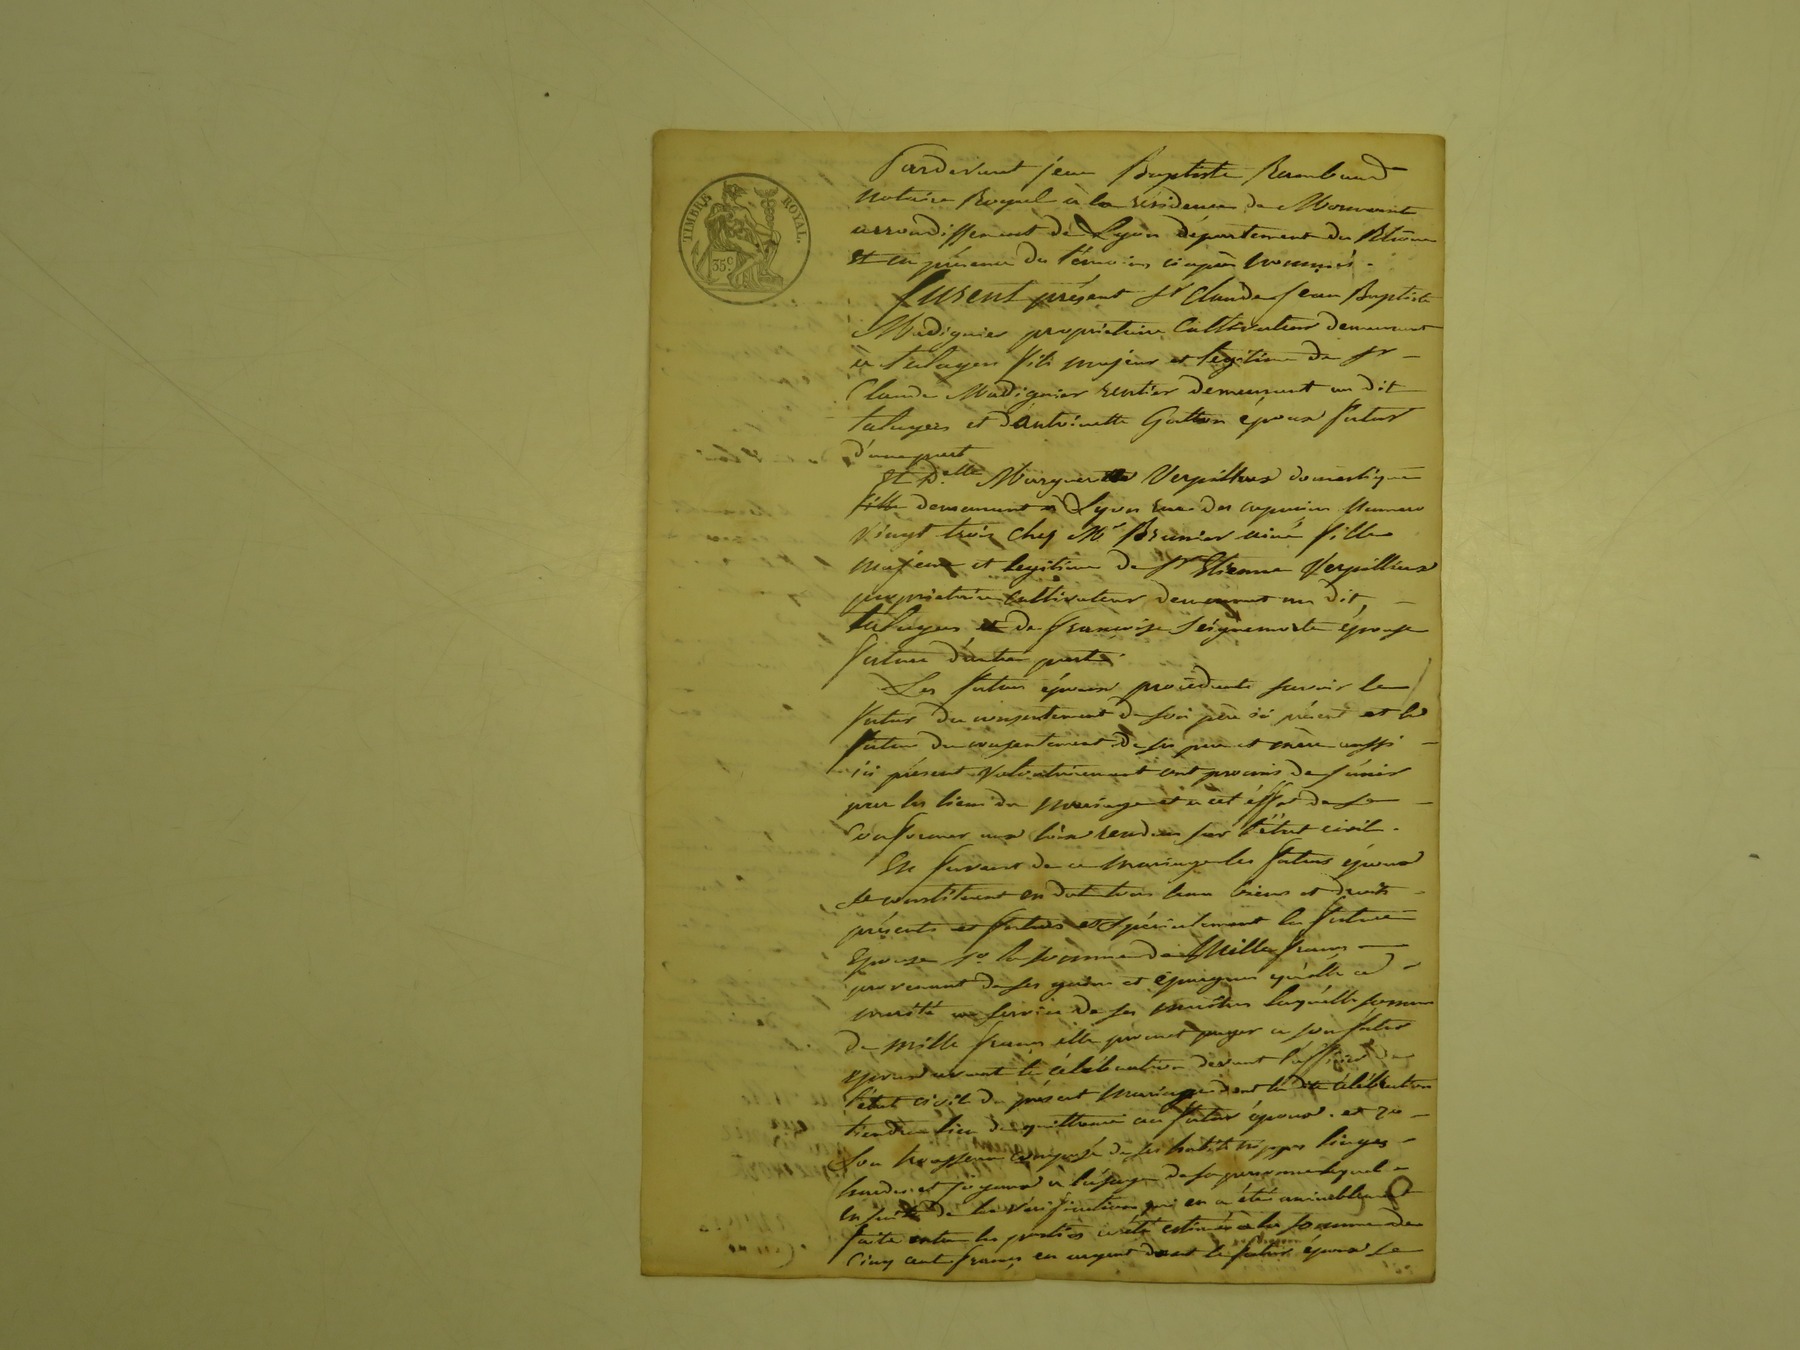 TIMBRE ROYAL.
35c
Pardevant jean Baptiste Rambaud
notaire Royal à la résidence de Mornant
arrondissement de Lyon département du Rhône
et en présence du témoins ciaprès nommés.
furent présent Sr Claude Jean Baptiste
Madignier propriétaire Cultivateur demeurant
a taluyers fils majeur et legitime de Sr
Claude Madignier rentier demeurant au dit
taluyers et d'antoinette Gatton époux futur
d'une part
Et Delle Marguerite Verpilleux domestique
fille demeurant à Lyon rue des capucins Numero
vingt trois chez Mr Brunier ainé fille
majeure et legitime de Sr Etienne Verpilleux
propriétaire cultivateur demeurant au dit,
taluyers et de françoise Seignemorte épouse
future d'autre part.
Les futurs époux procédants savoir le
futur du consentement de son père ici présent et la
future du consentement de ses père et mère aussi
ici présent volontairement ont promis de s'unir
par les liens du mariage et a cet éffet de se
conformer aux lois rendues sur l'état civil.
En faveur de ce mariage les futurs époux
se constituent en dot tous leurs biens et droits
présents et futurs et spécialement la future
Epouse 1o la somme de Mille francs
provenant de ses gains et épargnes qu'elle a
au service de ses maîtres laquelle somme
de mille francs elle promet payer a son futur
epoux avant la célébration devant l'officier de
l'état civil du présent mariage dont la dite célébration
tiendra lieu de quittance au futur époux. et 2o
Son trousseau composé de ses habits nippes linges
hardes et joyaux à l'usage de sa personne lequel
en suite de la vérification qui en a été amicablement
faite entre les parties a été estimé a la somme de
Cinq cent francs en argent dont le futur époux se